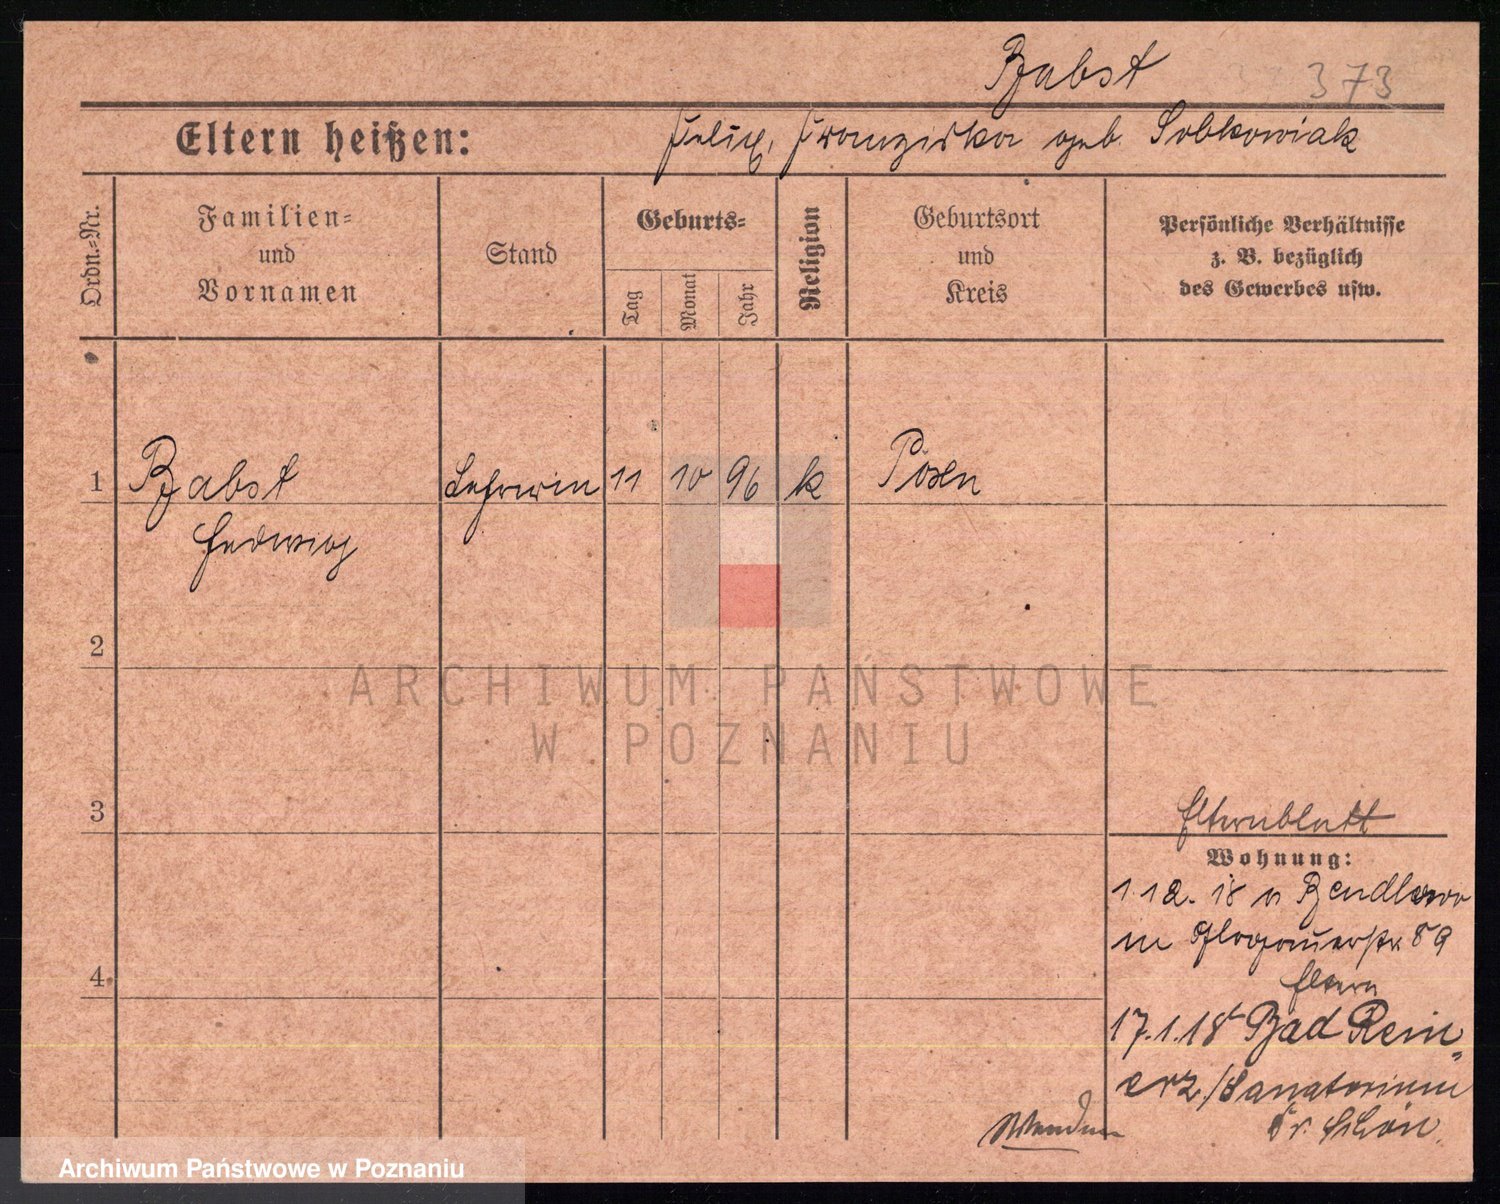 Babst 373
Eltern heißen: Felix, Franziska geb. Sobkowiak
Ordn.=Nr.
Familien=
und
Vornamen
Stand
Geburts=
Tag
Monat
Jahr
Religion
Geburtsort
und
Kreis
Persönliche Verhältnisse
z. B. bezüglich
des Gewerbes usw.
1 Babst Lehrerin 11 10 96 k Posen
Hedwig
2
ARCHIWUM PAŃSTWOWE
W POZNANIU
3
Elternblatt
Wohnung:
1 12. 18 n Bendlewo
Glogauerstr 89
4
Eltern
17.1.18 Bad Rein=
erz / Sanatorium
Dr. Schön.
Wenden
Archiwum Państwowe w Poznaniu